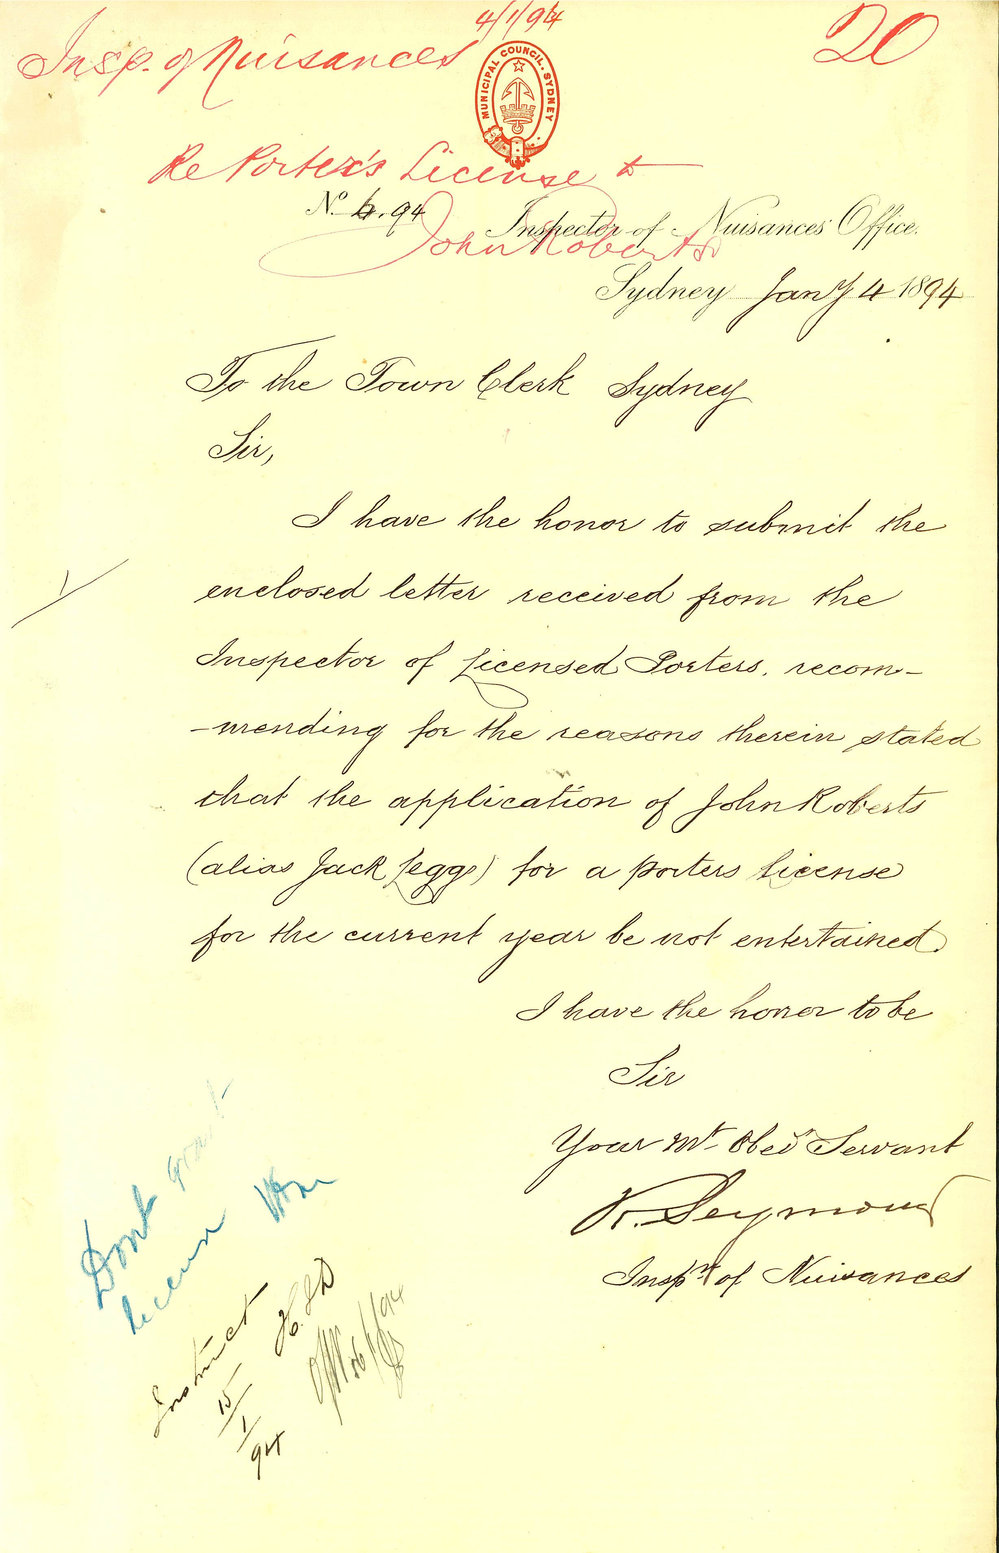 4/1/94
Insp. of Nuisances
20
MUNICIPAL COUNCIL. SYDNEY
Re Porter's License to
John Roberts
No. 6. 94
Inspector of Nuisances Office.
Sydney Jany 4 1894
To the Town Clerk Sydney
Sir,
I have the honor to submit the
enclosed letter received from the
Inspector of Licensed Porters, recom-
-mending for the reasons therein stated
that the application of John Roberts
(alias Jack Leggs) for a porters license
for the current year be not entertained.
I have the honor to be
Sir
Your Mt Obedt Servant
R. Seymour
Inspr of Nuisances
Dont grant
license
Instruct
15/1/94